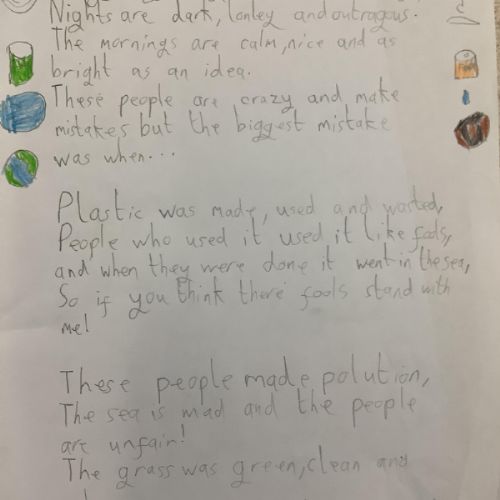 Nights are dark, lonley and outragous.
The mornings are calm, nice and as
bright as an idea.
These people are crazy and make
mistakes but the biggest mistake
was when...
Plastic was made, used and wasted,
People who used it used it like fools,
and when they were done it went in the sea,
So if you think there fools stand with
me!
These people made polution,
The sea is mad and the people
are unfair!
The grass was green, clean and